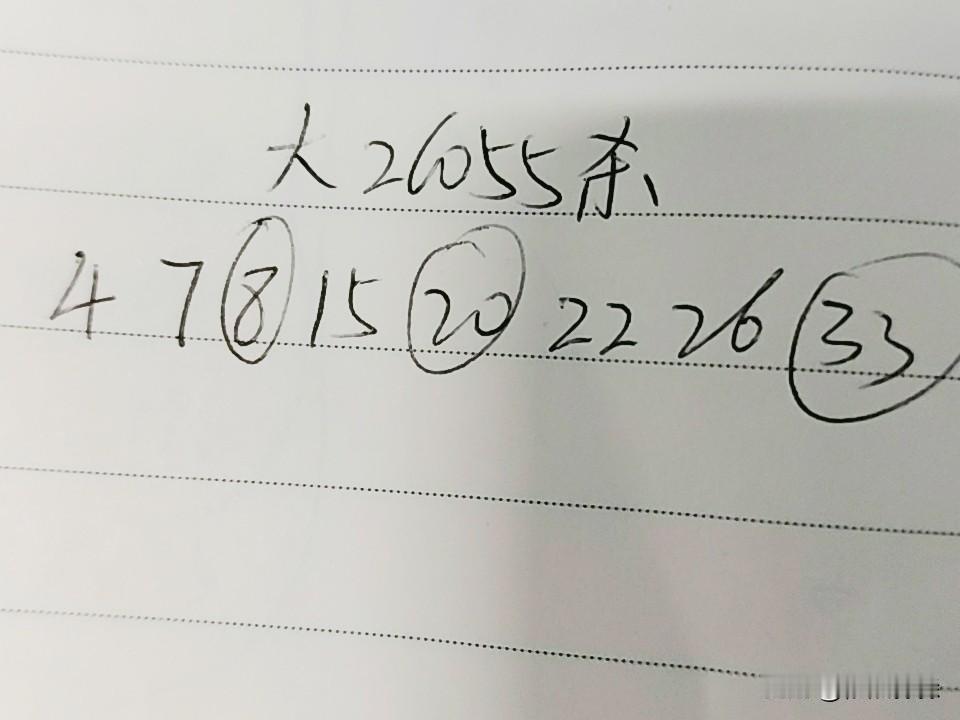 大26055杀
4 7 8 15 20 22 26 33